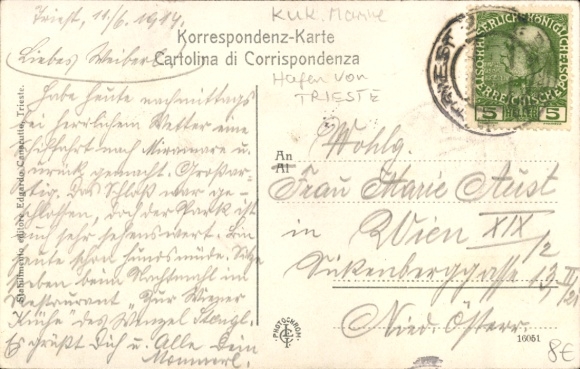 Triest, 11./6. 1914.
K.u.K. Marine
Korrespondenz-Karte
Cartolina di Corrispondenza
Hafen von
TRIESTE
Liebes Weiberl!
Habe heute nachmittags
bei herrlichem Wetter eine
Schiffahrt nach Miramare u.
zurück gemacht. Großar-
tig. Das Schloß war ge-
schlossen, doch der Park ist
auch sehr sehenswert. Bin
heute schon hundsmüde. Sitze
soeben beim Nachtmahl im
Restaurant "Zur Wiener
Küche" des Wenzel Stangl.
Es grüßt Dich u. Alle Dein
Mannerl.
Stabilimento editore Edgardo Trieste.
KAISERLICH KÖNIGLICHE
ÖSTERREICHISCHE POST
5 HELLER 5
TRIEST
An
Al
Wohlg.
Frau Marie Aust
in Wien XIX/2
13
Nied. Österr.
PHOTOCHROM
16051
8€